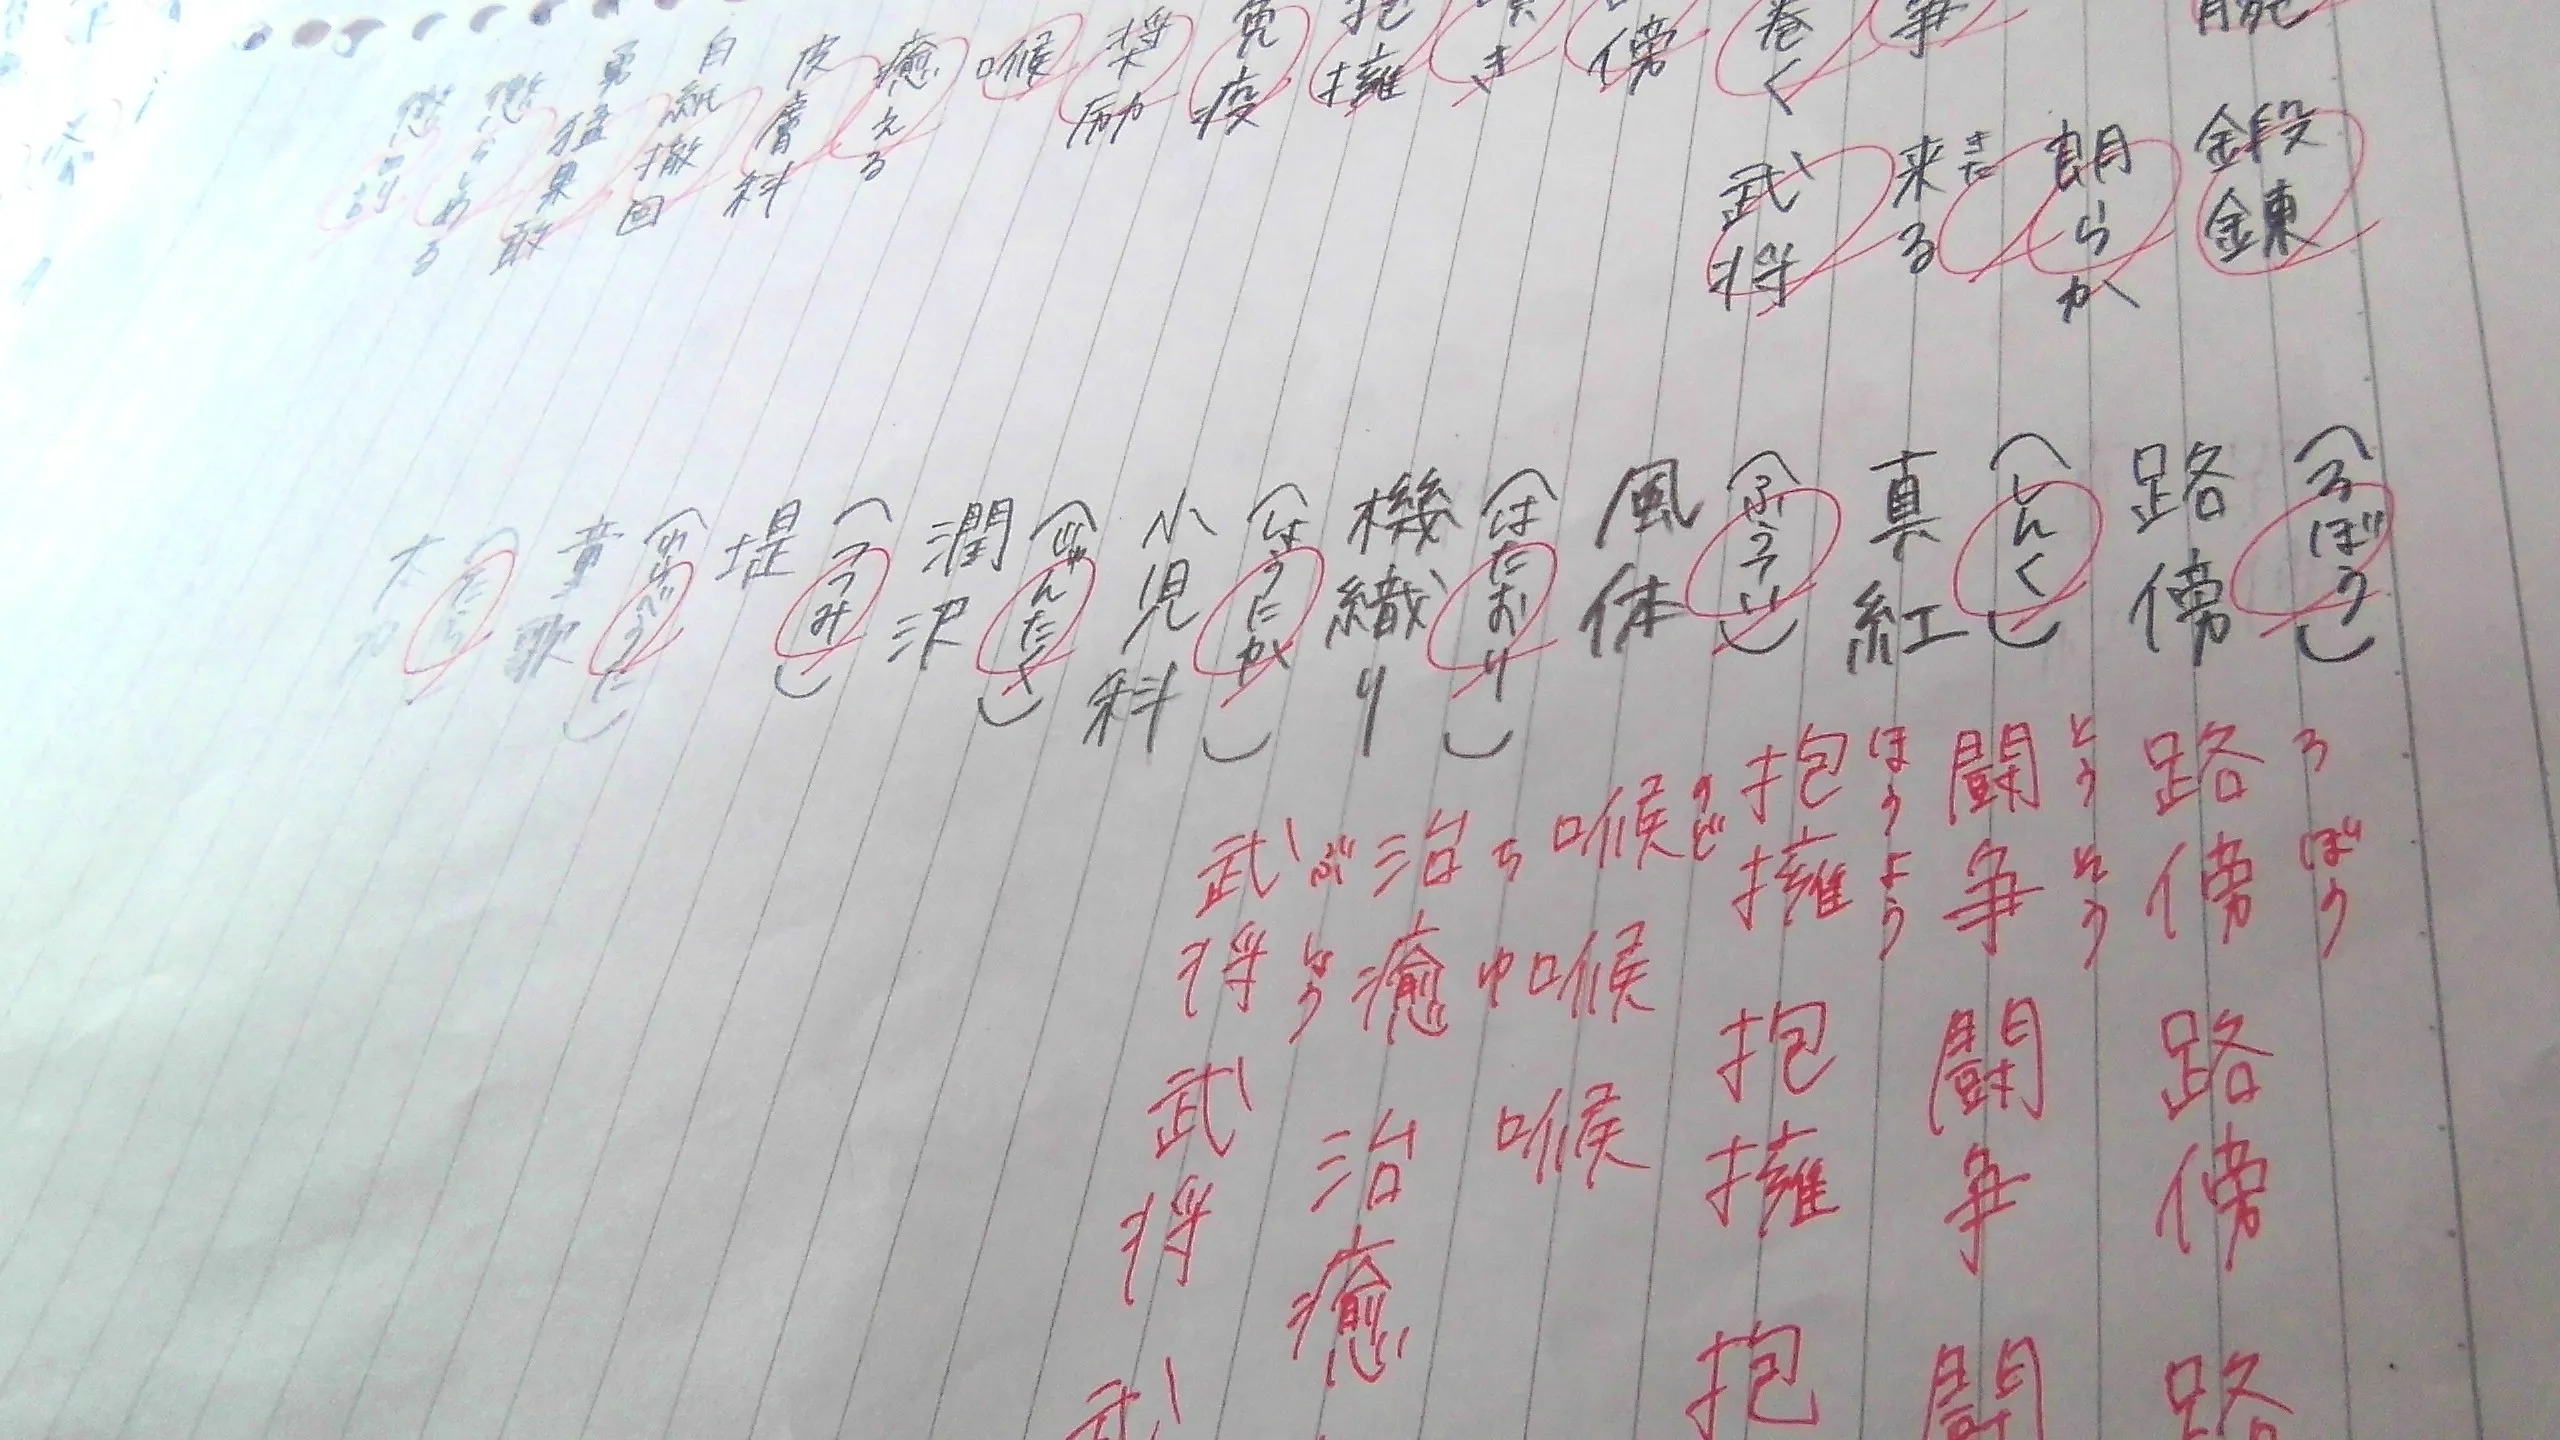 腕
争
巻く
傍
き
抱擁
免疫
奨励
喉
癒える
皮膚科
白紙撤回
勇猛果敢
懲らしめる
懲罰
鍛錬
朗らか
来る
きた
武将
(ろぼう)
路傍
(しんく)
真紅
(ふうてい)
風体
(はたおり)
機織り
(しょうにか)
小児科
(じゅんたく)
潤沢
(つつみ)
堤
(わらべうた)
童歌
ろぼう
路傍
路傍
路
とうそう
闘争
闘争
闘
ほうよう
抱擁
抱擁
抱
のど
喉
喉
喉
ちゆ
治癒
治癒
ぶしょう
武将
武将
武